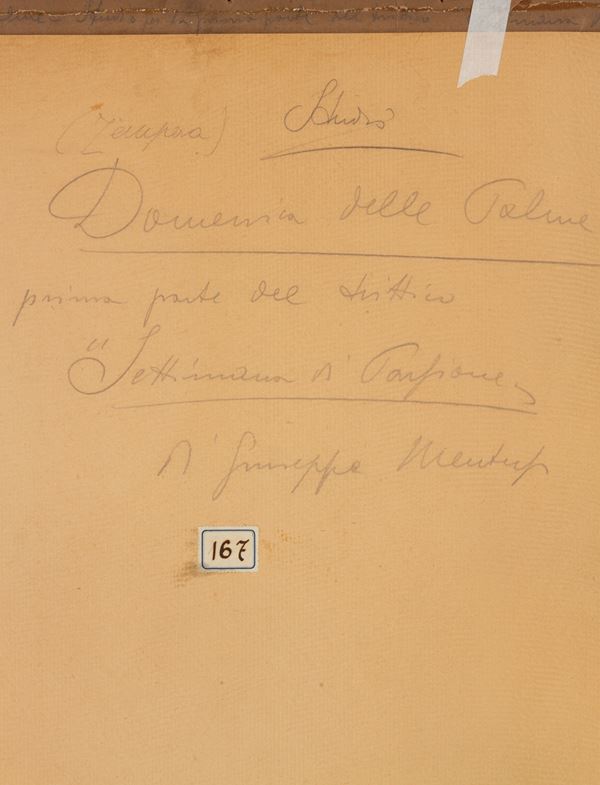 Studio per la prima parte del trittico
(Tempera) Studio
Domenica delle Palme
prima parte del trittico
"Settimana di Passione"
di Giuseppe Mentessi
167